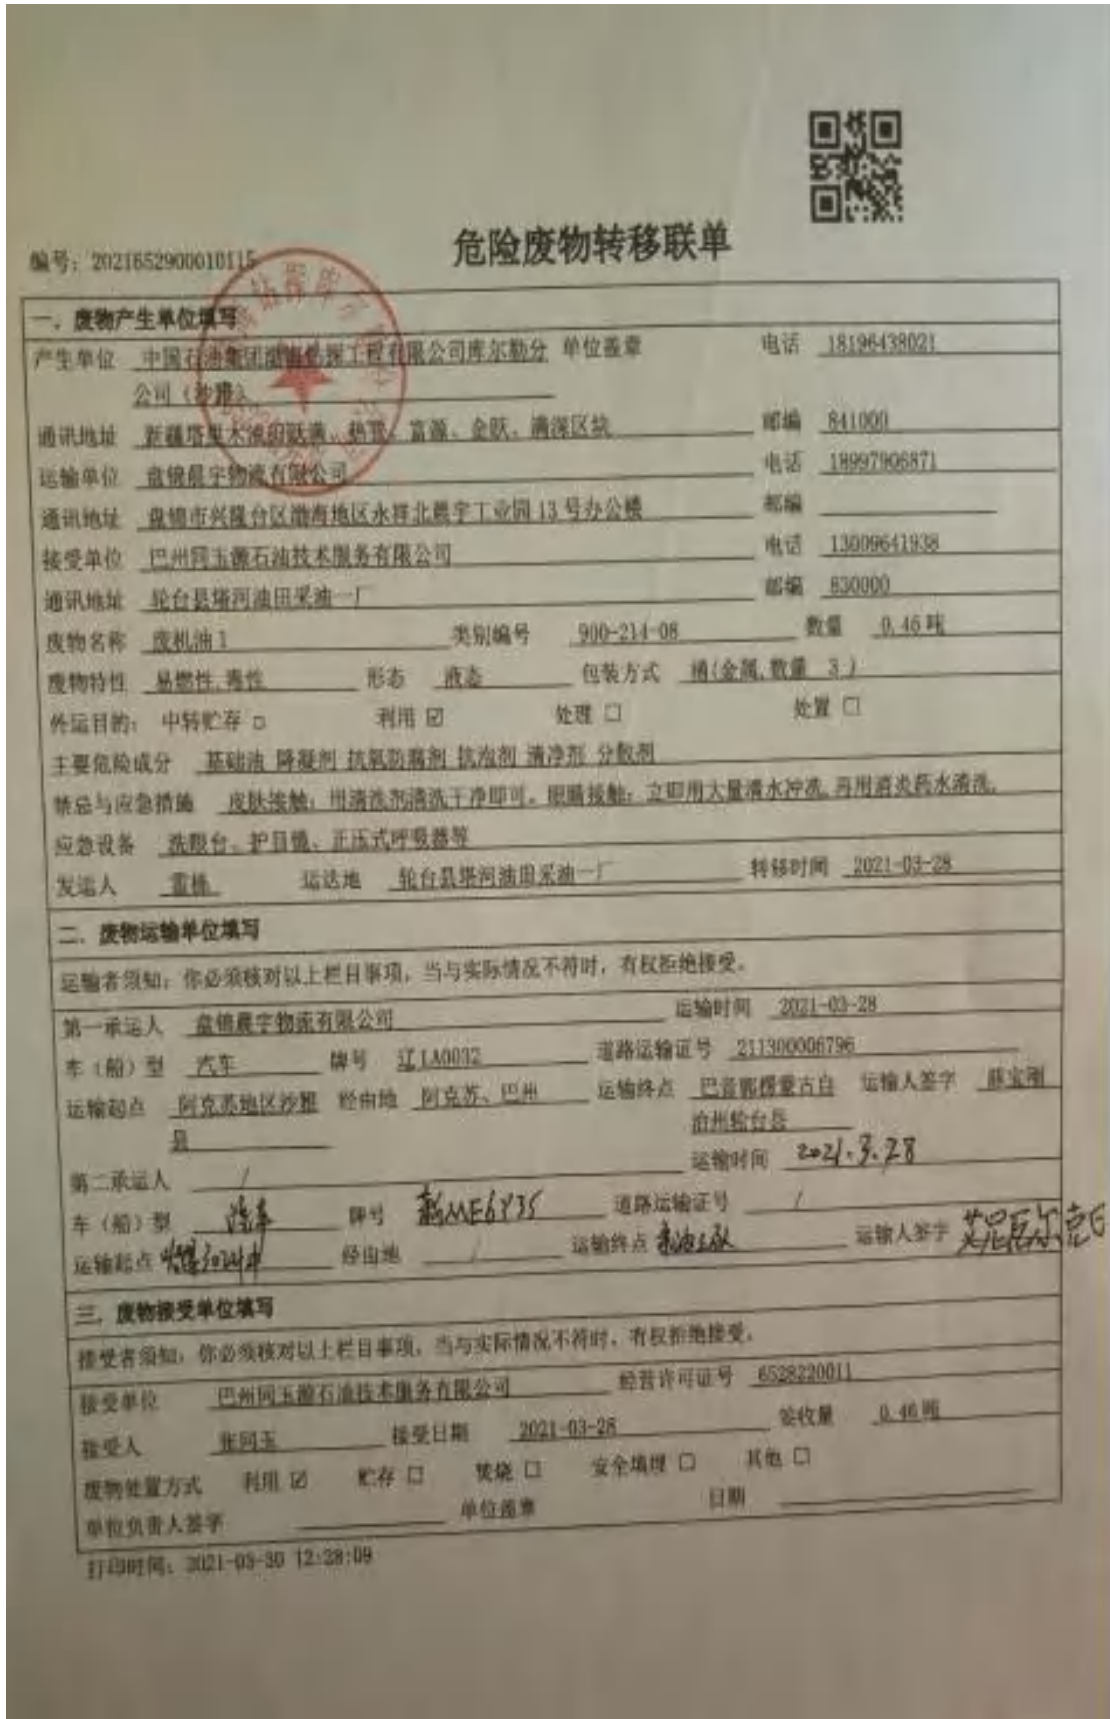 危险废物转移联单
编号: 2021652900010115
一. 废物产生单位填写
产生单位 中国石油集团渤海钻探工程有限公司库尔勒分 单位盖章 电话 18196438021
公司（沙雅）
通讯地址 新疆塔里木油田跃满、热普、富源、金跃、满深区块 邮编 841000
运输单位 盘锦晨宇物流有限公司 电话 18997906871
通讯地址 盘锦市兴隆台区渤海地区永祥北晨宇工业园 13 号办公楼 邮编
接受单位 巴州同玉源石油技术服务有限公司 电话 13009641938
通讯地址 轮台县塔河油田采油一厂 邮编 830000
废物名称 废机油 1 类别编号 900-214-08 数量 0.46 吨
废物特性 易燃性,毒性 形态 液态 包装方式 桶(金属,数量 3 )
外运目的: 中转贮存 □ 利用 ☑ 处理 □ 处置 □
主要危险成分 基础油 降凝剂 抗氧防腐剂 抗泡剂 清净剂 分散剂
禁忌与应急措施 皮肤接触: 用清洗剂清洗干净即可。眼睛接触: 立即用大量清水冲洗,再用消炎药水清洗。
应急设备 洗眼台、护目镜、正压式呼吸器等
发运人 雷栋 运达地 轮台县塔河油田采油一厂 转移时间 2021-03-28
二. 废物运输单位填写
运输者须知: 你必须核对以上栏目事项，当与实际情况不符时，有权拒绝接受。
第一承运人 盘锦晨宇物流有限公司 运输时间 2021-03-28
车（船）型 汽车 牌号 辽 LA0032 道路运输证号 211300006796
运输起点 阿克苏地区沙雅 经由地 阿克苏、巴州 运输终点 巴音郭楞蒙古自 运输人签字 薛宝刚
县 治州轮台县
运输时间 2021.3.28
第二承运人 /
车（船）型 汽车 牌号 新ME6Y35 道路运输证号 /
运输起点 经由地 / 运输终点 运输人签字
三. 废物接受单位填写
接受者须知: 你必须核对以上栏目事项，当与实际情况不符时，有权拒绝接受。
接受单位 巴州同玉源石油技术服务有限公司 经营许可证号 6528220011
接受人 张同玉 接受日期 2021-03-28 签收量 0.46 吨
废物处置方式 利用 ☑ 贮存 □ 焚烧 □ 安全填埋 □ 其他 □
单位负责人签字 单位盖章 日期
打印时间: 2021-03-30 12:28:09